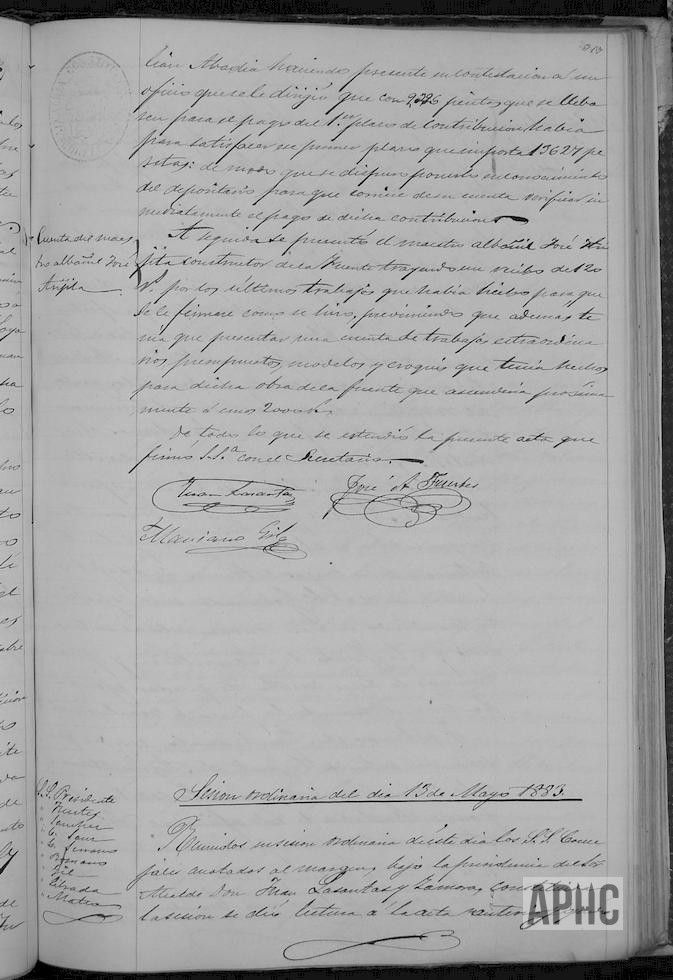 lian Abadia haciendo presente en contestacion á un
oficio que se le dirijió que con 9.326 pesetas que se lleba
sen para el pago del 1.er plazo de Contribucion habia
para satisfacer un primer plazo que importa 13627 pe
setas: de modo que se dispuso ponerlo en conocimiento
del depositario para que de su cuenta verificar in
mediatamente el pago de dicha contribucion
Cuenta del maes
tro albañil José
Arijita
A seguida se presentó el maestro albañil José Ari
jita constructor de la Fuente trayendo un recibo de 120
por los ultimos trabajos que habia hecho para que
se le firmare como se hizo, previniendo que ademas te
nia que presentar una cuenta de trabajos extraordina
rios presupuestos, modelos y croquis que tenia hechos
para dicha obra de la fuente que ascenderia próxima
mente á unos 2000
De todo lo que se estendió la presente acta que
firmó S.S.ª con el Secretario.
Juan Lasantas
José A. Fuertes
Mariano Gil
Sesion ordinaria del dia 13 de Mayo 1883.
S.S. Presidente
" Fuertes
" Sanchez
" C. Sanz
" Serrano
" Gil
" Estrada
" Mateo
Reunidos en sesion ordinaria de este dia los S.S. Conce
jales anotados al margen, bajo la presidencia del Sor
Alcalde Don Juan Lasantas y Zamora,
la sesion se dió lectura á la acta anterior
APHC